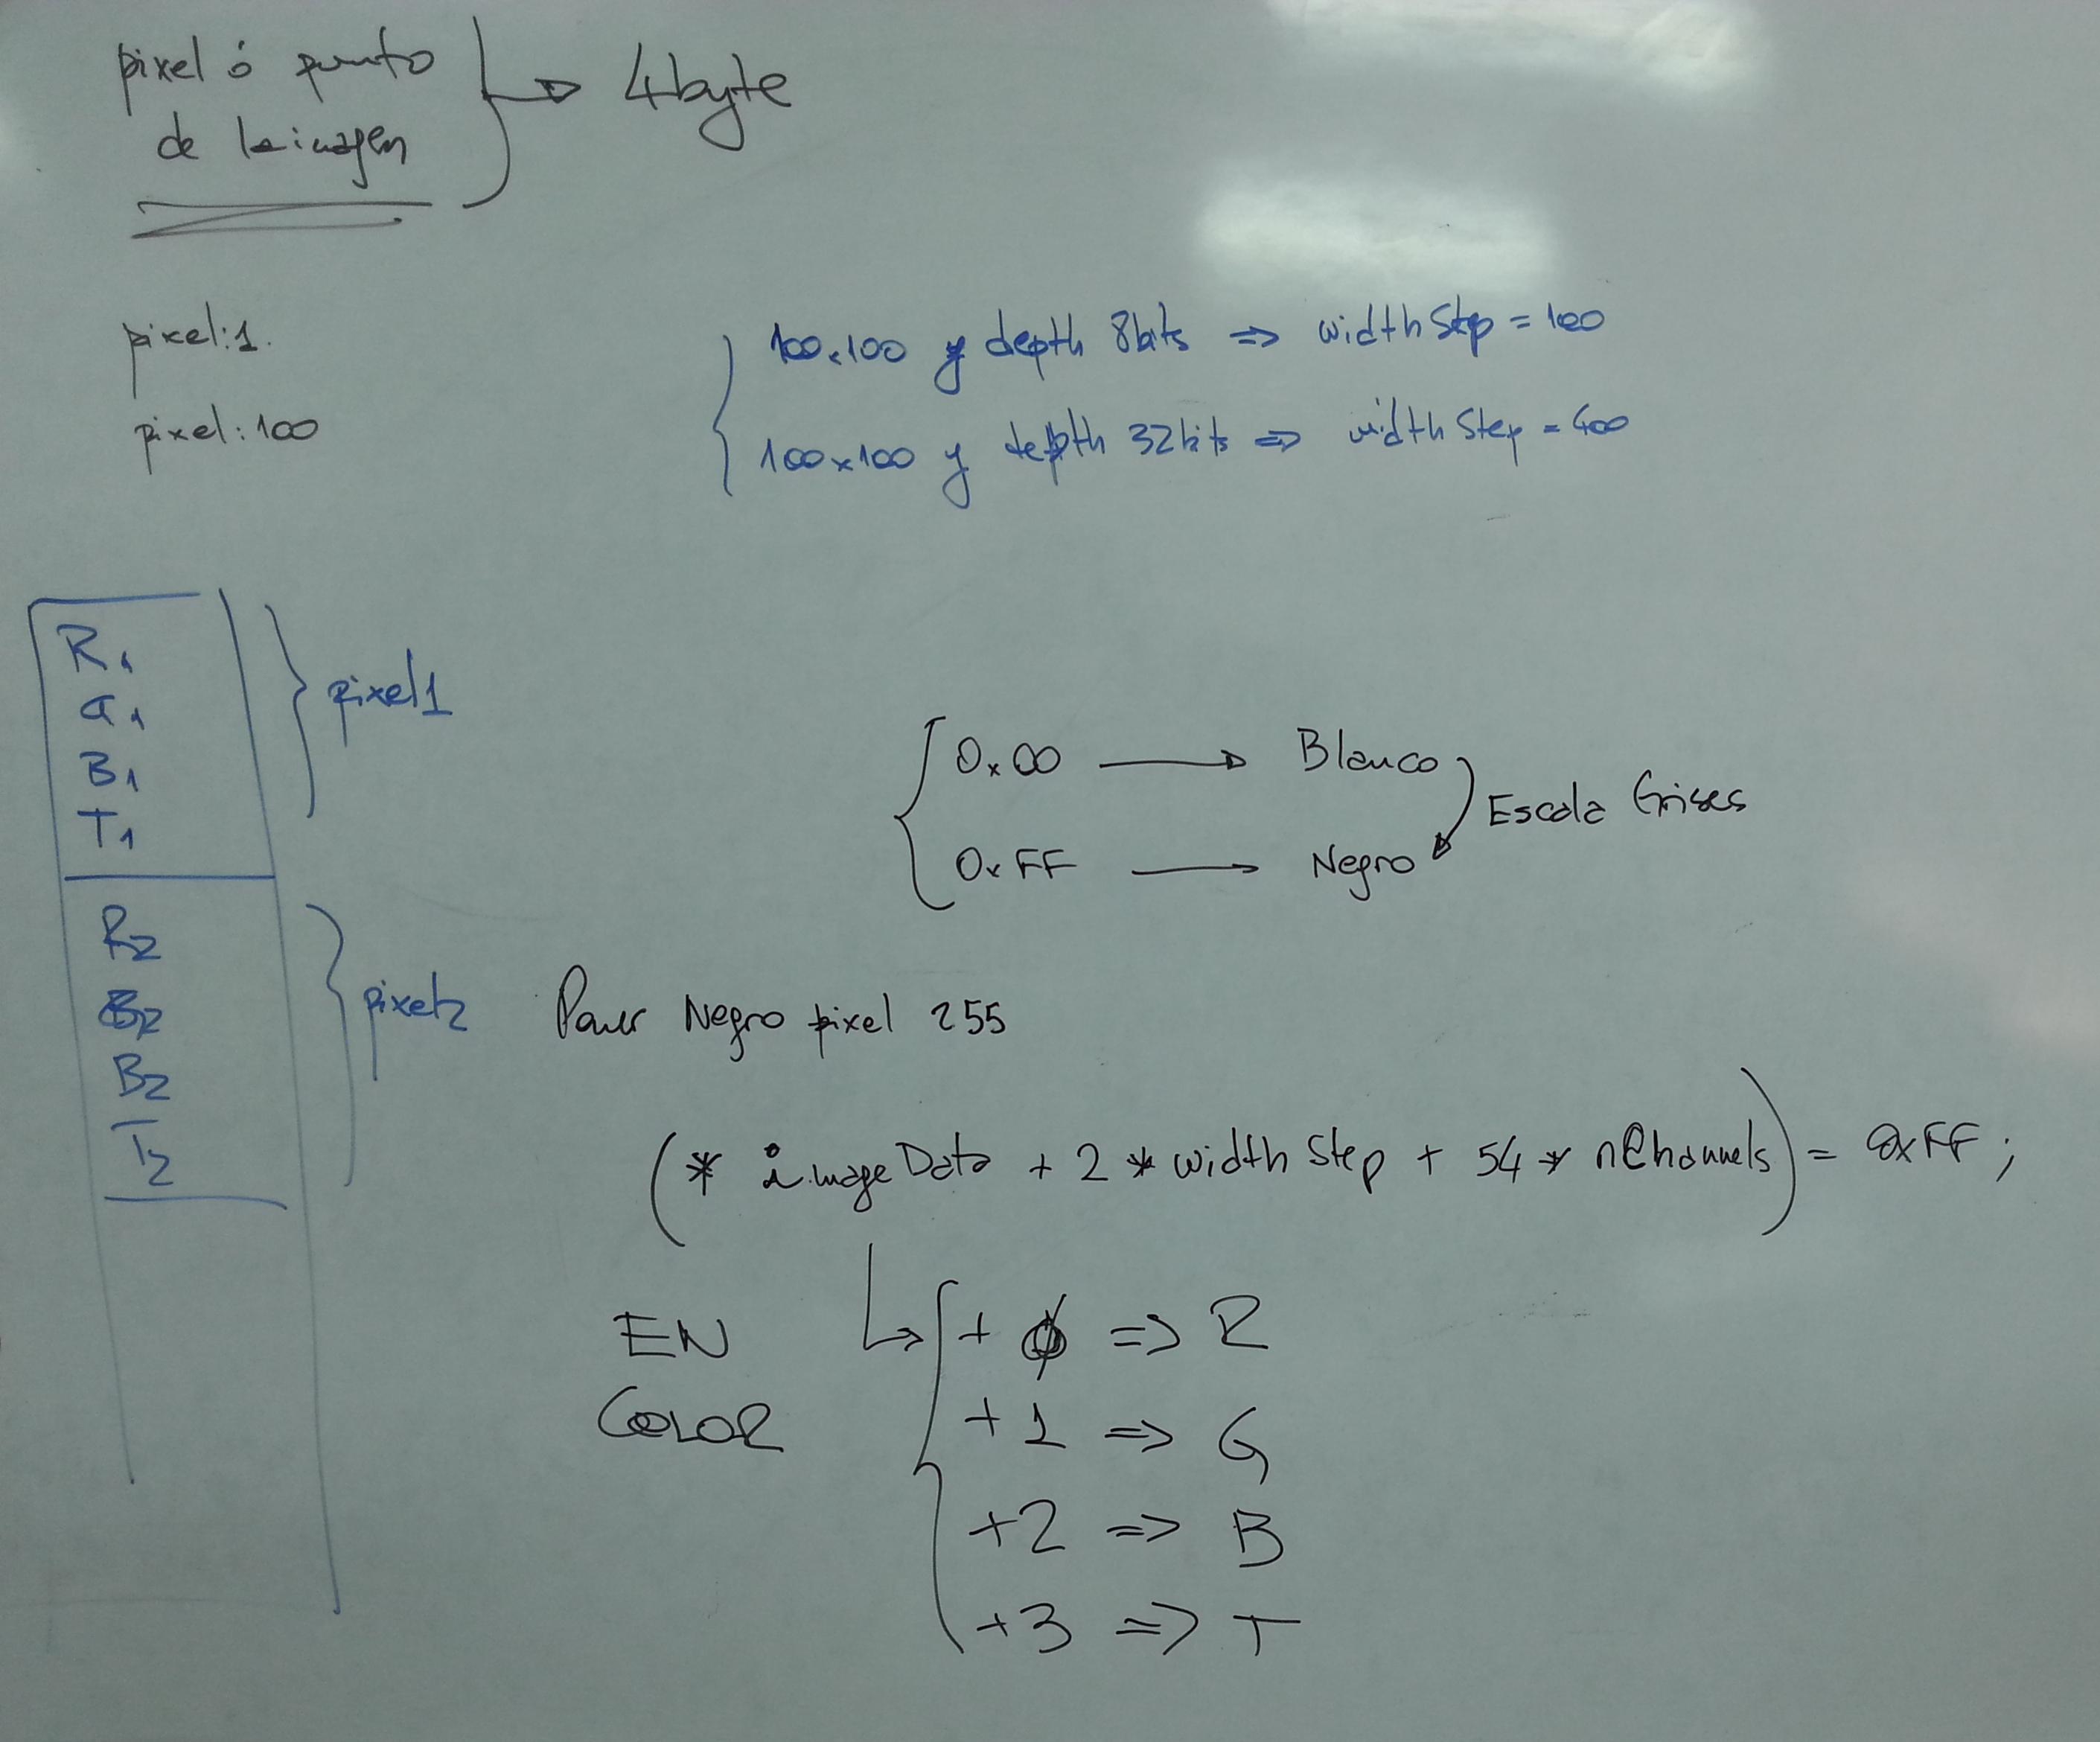 pixel ó punto
de la imagen
4byte
pixel:1.
pixel:100
100x100 y depth 8bits => widthStep = 100
100x100 y depth 32bits => widthStep = 400
R1
G1
B1
T1
pixel1
R2
B2
T2
pixel2
0x00 → Blanco
0xFF → Negro
Escala Grises
Poner Negro pixel 255
(* imageData + 2 * widthStep + 54 * nChannels) = 0xFF;
EN
COLOR
+ 0 => R
+1 => G
+2 => B
+3 => T